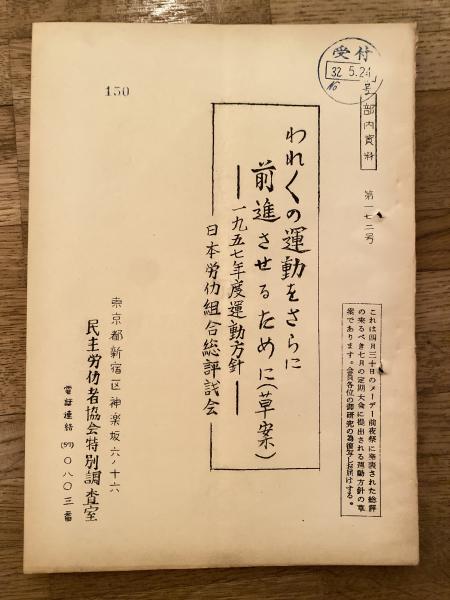 受付
32. 5. 24
No
部内資料
第一七二号
これは四月三十日のメーデー前夜祭に発表された総評
の来るべき七月の定期大会に提出される運動方針の草
案であります。会員各位の御研究の為復写しお届けする。
われ〱の運動をさらに
前進させるために(草案)
――一九五七年度運動方針――
日本労仂組合総評試会
150
東京都新宿区神楽坂六ノ十六
民主労仂者協会特別調査室
電話連絡(57)〇八〇三番